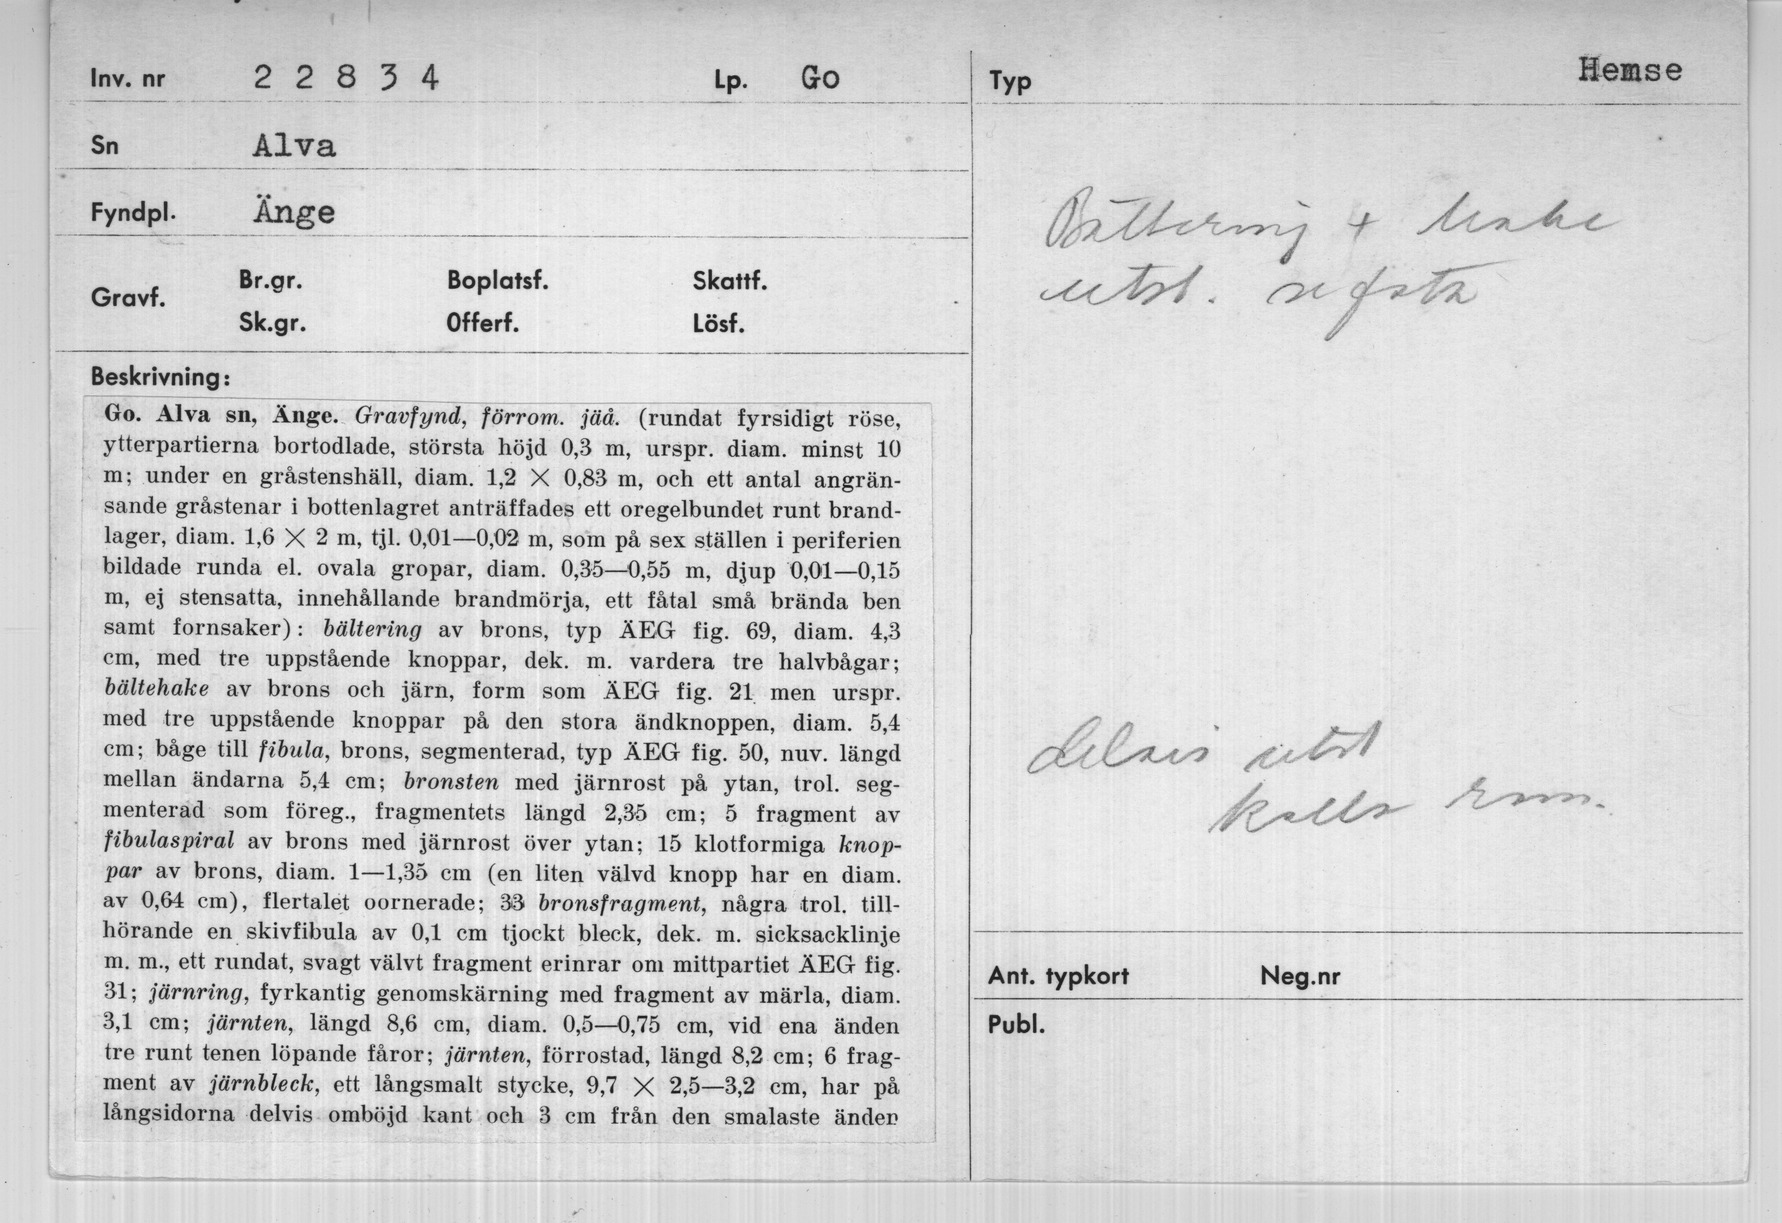 Inv. nr 2 2 8 3 4 Lp. Go
Sn Alva
Fyndpl. Änge
Gravf. Br.gr. Boplatsf. Skattf.
Sk.gr. Offerf. Lösf.
Beskrivning:
Go. Alva sn, Änge. Gravfynd, förrom. jäå. (rundat fyrsidigt röse,
ytterpartierna bortodlade, största höjd 0,3 m, urspr. diam. minst 10
m; under en gråstenshäll, diam. 1,2 × 0,83 m, och ett antal angrän-
sande gråstenar i bottenlagret anträffades ett oregelbundet runt brand-
lager, diam. 1,6 × 2 m, tjl. 0,01—0,02 m, som på sex ställen i periferien
bildade runda el. ovala gropar, diam. 0,35—0,55 m, djup 0,01—0,15
m, ej stensatta, innehållande brandmörja, ett fåtal små brända ben
samt fornsaker): bältering av brons, typ ÄEG fig. 69, diam. 4,3
cm, med tre uppstående knoppar, dek. m. vardera tre halvbågar;
bältehake av brons och järn, form som ÄEG fig. 21 men urspr.
med tre uppstående knoppar på den stora ändknoppen, diam. 5,4
cm; båge till fibula, brons, segmenterad, typ ÄEG fig. 50, nuv. längd
mellan ändarna 5,4 cm; bronsten med järnrost på ytan, trol. seg-
menterad som föreg., fragmentets längd 2,35 cm; 5 fragment av
fibulaspiral av brons med järnrost över ytan; 15 klotformiga knop-
par av brons, diam. 1—1,35 cm (en liten välvd knopp har en diam.
av 0,64 cm), flertalet oornerade; 33 bronsfragment, några trol. till-
hörande en skivfibula av 0,1 cm tjockt bleck, dek. m. sicksacklinje
m. m., ett rundat, svagt välvt fragment erinrar om mittpartiet ÄEG fig.
31; järnring, fyrkantig genomskärning med fragment av märla, diam.
3,1 cm; järnten, längd 8,6 cm, diam. 0,5—0,75 cm, vid ena änden
tre runt tenen löpande fåror; järnten, förrostad, längd 8,2 cm; 6 frag-
ment av järnbleck, ett långsmalt stycke, 9,7 × 2,5—3,2 cm, har på
långsidorna delvis omböjd kant och 3 cm från den smalaste änden
Typ Hemse
Bältering + hake
utst.
Delvis utst
kalla rum.
Ant. typkort Neg.nr
Publ.